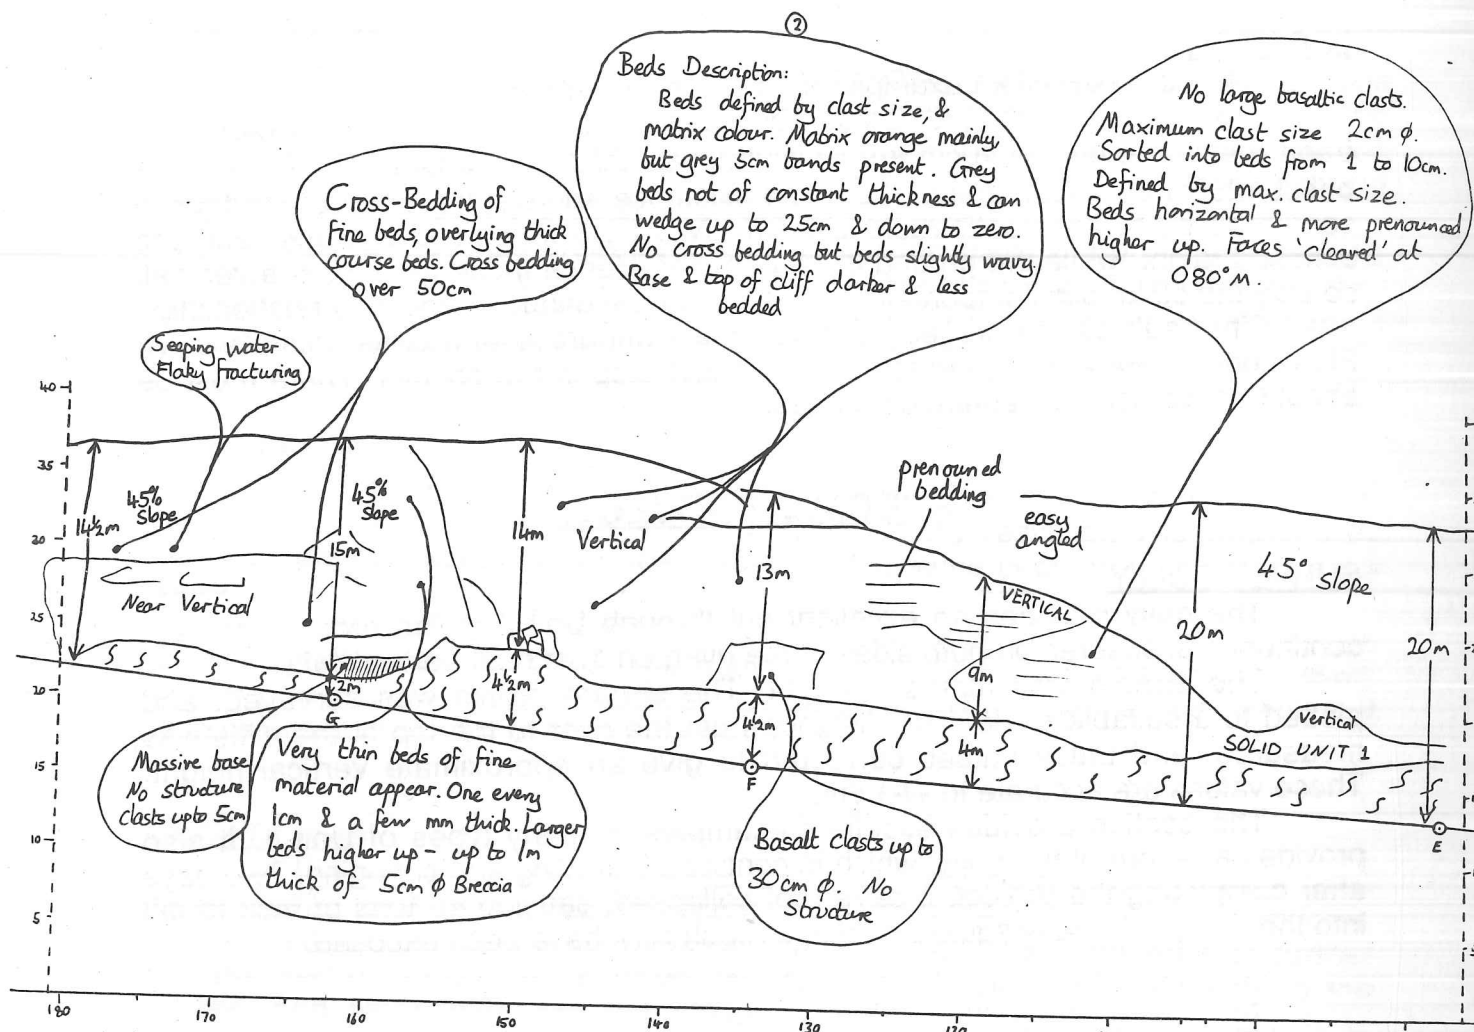 2
Beds Description:
Beds defined by clast size, &
matrix colour. Matrix orange mainly
but grey 5cm bands present. Grey
beds not of constant thickness & can
wedge up to 25cm & down to zero.
No cross bedding but beds slightly wavy.
Base & top of cliff darker & less
bedded
No large basaltic clasts.
Maximum clast size 2cm ϕ.
Sorted into beds from 1 to 10cm.
Defined by max. clast size.
Beds horizontal & more prenounced
higher up. Faces 'cleaved' at
080°M.
Cross-Bedding of
fine beds, overlying thick
course beds. Cross bedding
over 50cm
Seeping water
Flaky fracturing
40
35
30
25
20
15
10
5
45%
Slope
14½m
Near Vertical
15m
45%
Slope
14m
Vertical
13m
prenouned
bedding
easy
angled
VERTICAL
9m
45° Slope
20m
20m
2m
G
4½m
4½m
F
4m
Vertical
SOLID UNIT 1
E
Massive base
No structure
clasts upto 5cm
Very thin beds of fine
material appear. One every
1cm & a few mm thick. Larger
beds higher up - up to 1m
thick of 5cm ϕ Breccia
Basalt clasts up to
30cm ϕ. No
Structure
180
170
160
150
140
130
120